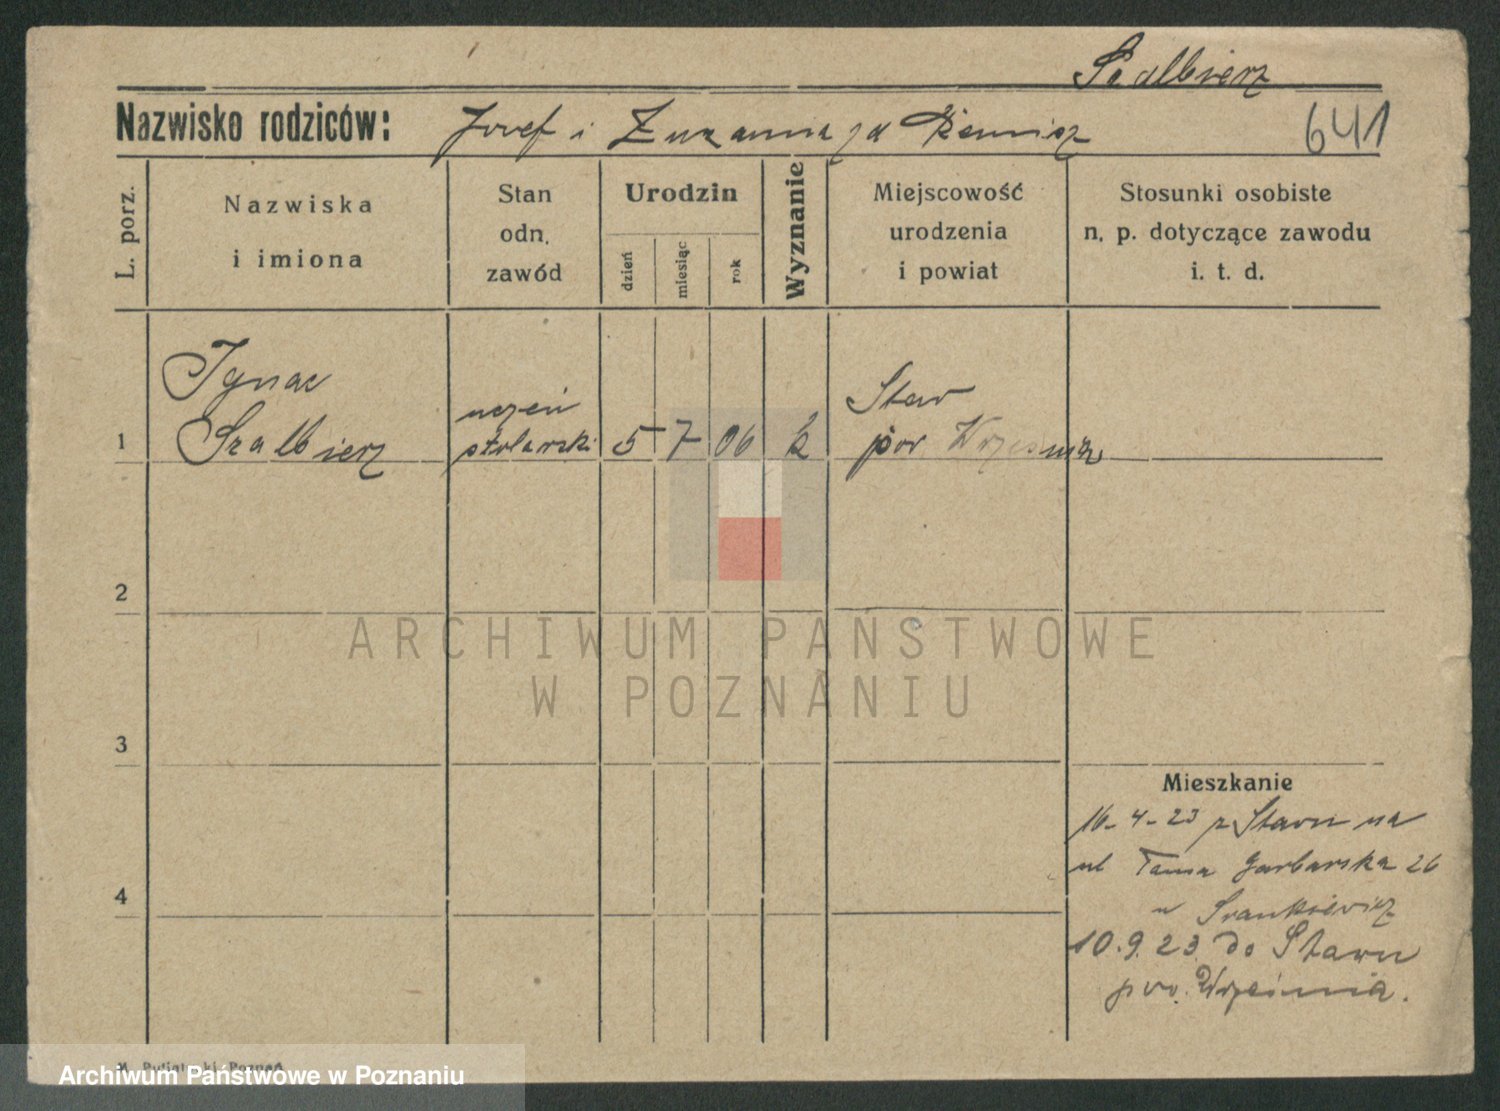 Szalbierz
Nazwisko rodziców: Józef i Zuzanna zd
641
L. porz.
Nazwiska
i imiona
Stan
odn.
zawód
Urodzin
dzień
miesiąc
rok
Wyznanie
Miejscowość
urodzenia
i powiat
Stosunki osobiste
n. p. dotyczące zawodu
i. t. d.
1
Ignac
Szalbierz
uczeń
stolarski
5
7
06
k
Staw
pow. Września
2
3
4
Mieszkanie
16-4-23 z Stawu na
ul Tama Garbarska 26
u
10.9.23 do Stawu
pow. Września.
ARCHIWUM PAŃSTWOWE
W POZNANIU
Poznań
Archiwum Państwowe w Poznaniu